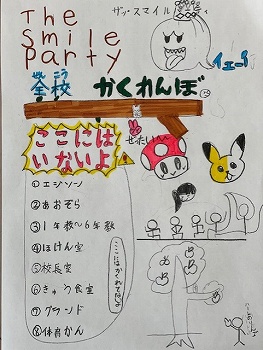 The
Smile
Party
ザッ・スマイルパーティ
イェーイ
ぜんこう
全校 かくれんぼ
ぜったい
ここには
いないよ
①エジソン
②あおぞら
③1年教〜6年教
④ほけん室
⑤校長室
⑥きゅう食室
⑦グランド
⑧体育かん
ここにはかくれてだめだよ